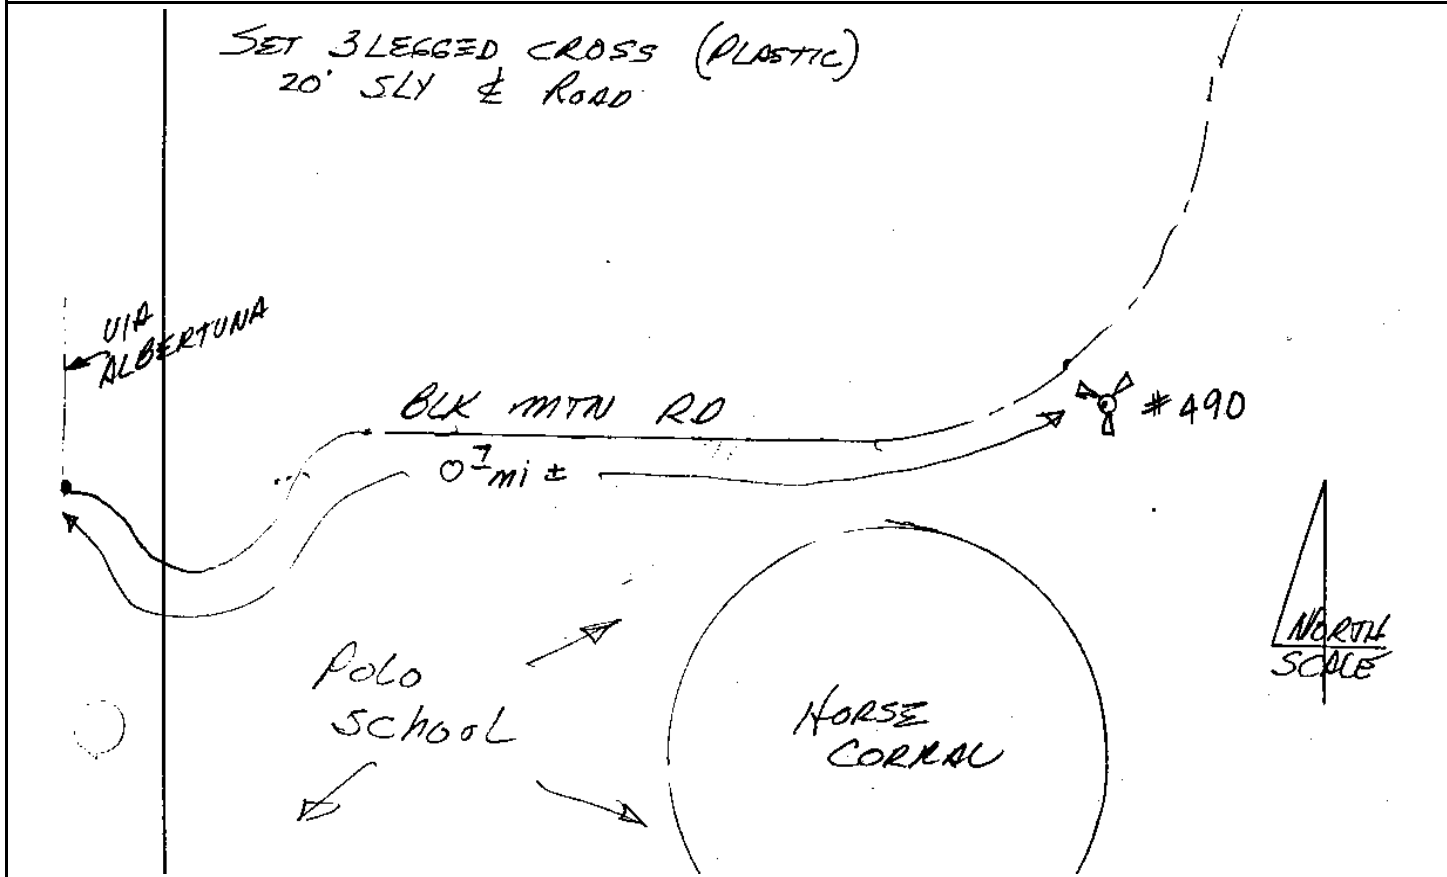 SET 3 LEGGED CROSS (PLASTIC)
20' SLY ℄ ROAD
VIA
ALBERTUNA
BLK MTN RD
0.7 mi ±
#490
NORTH
SCALE
POLO
SCHOOL
HORSE
CORRAL